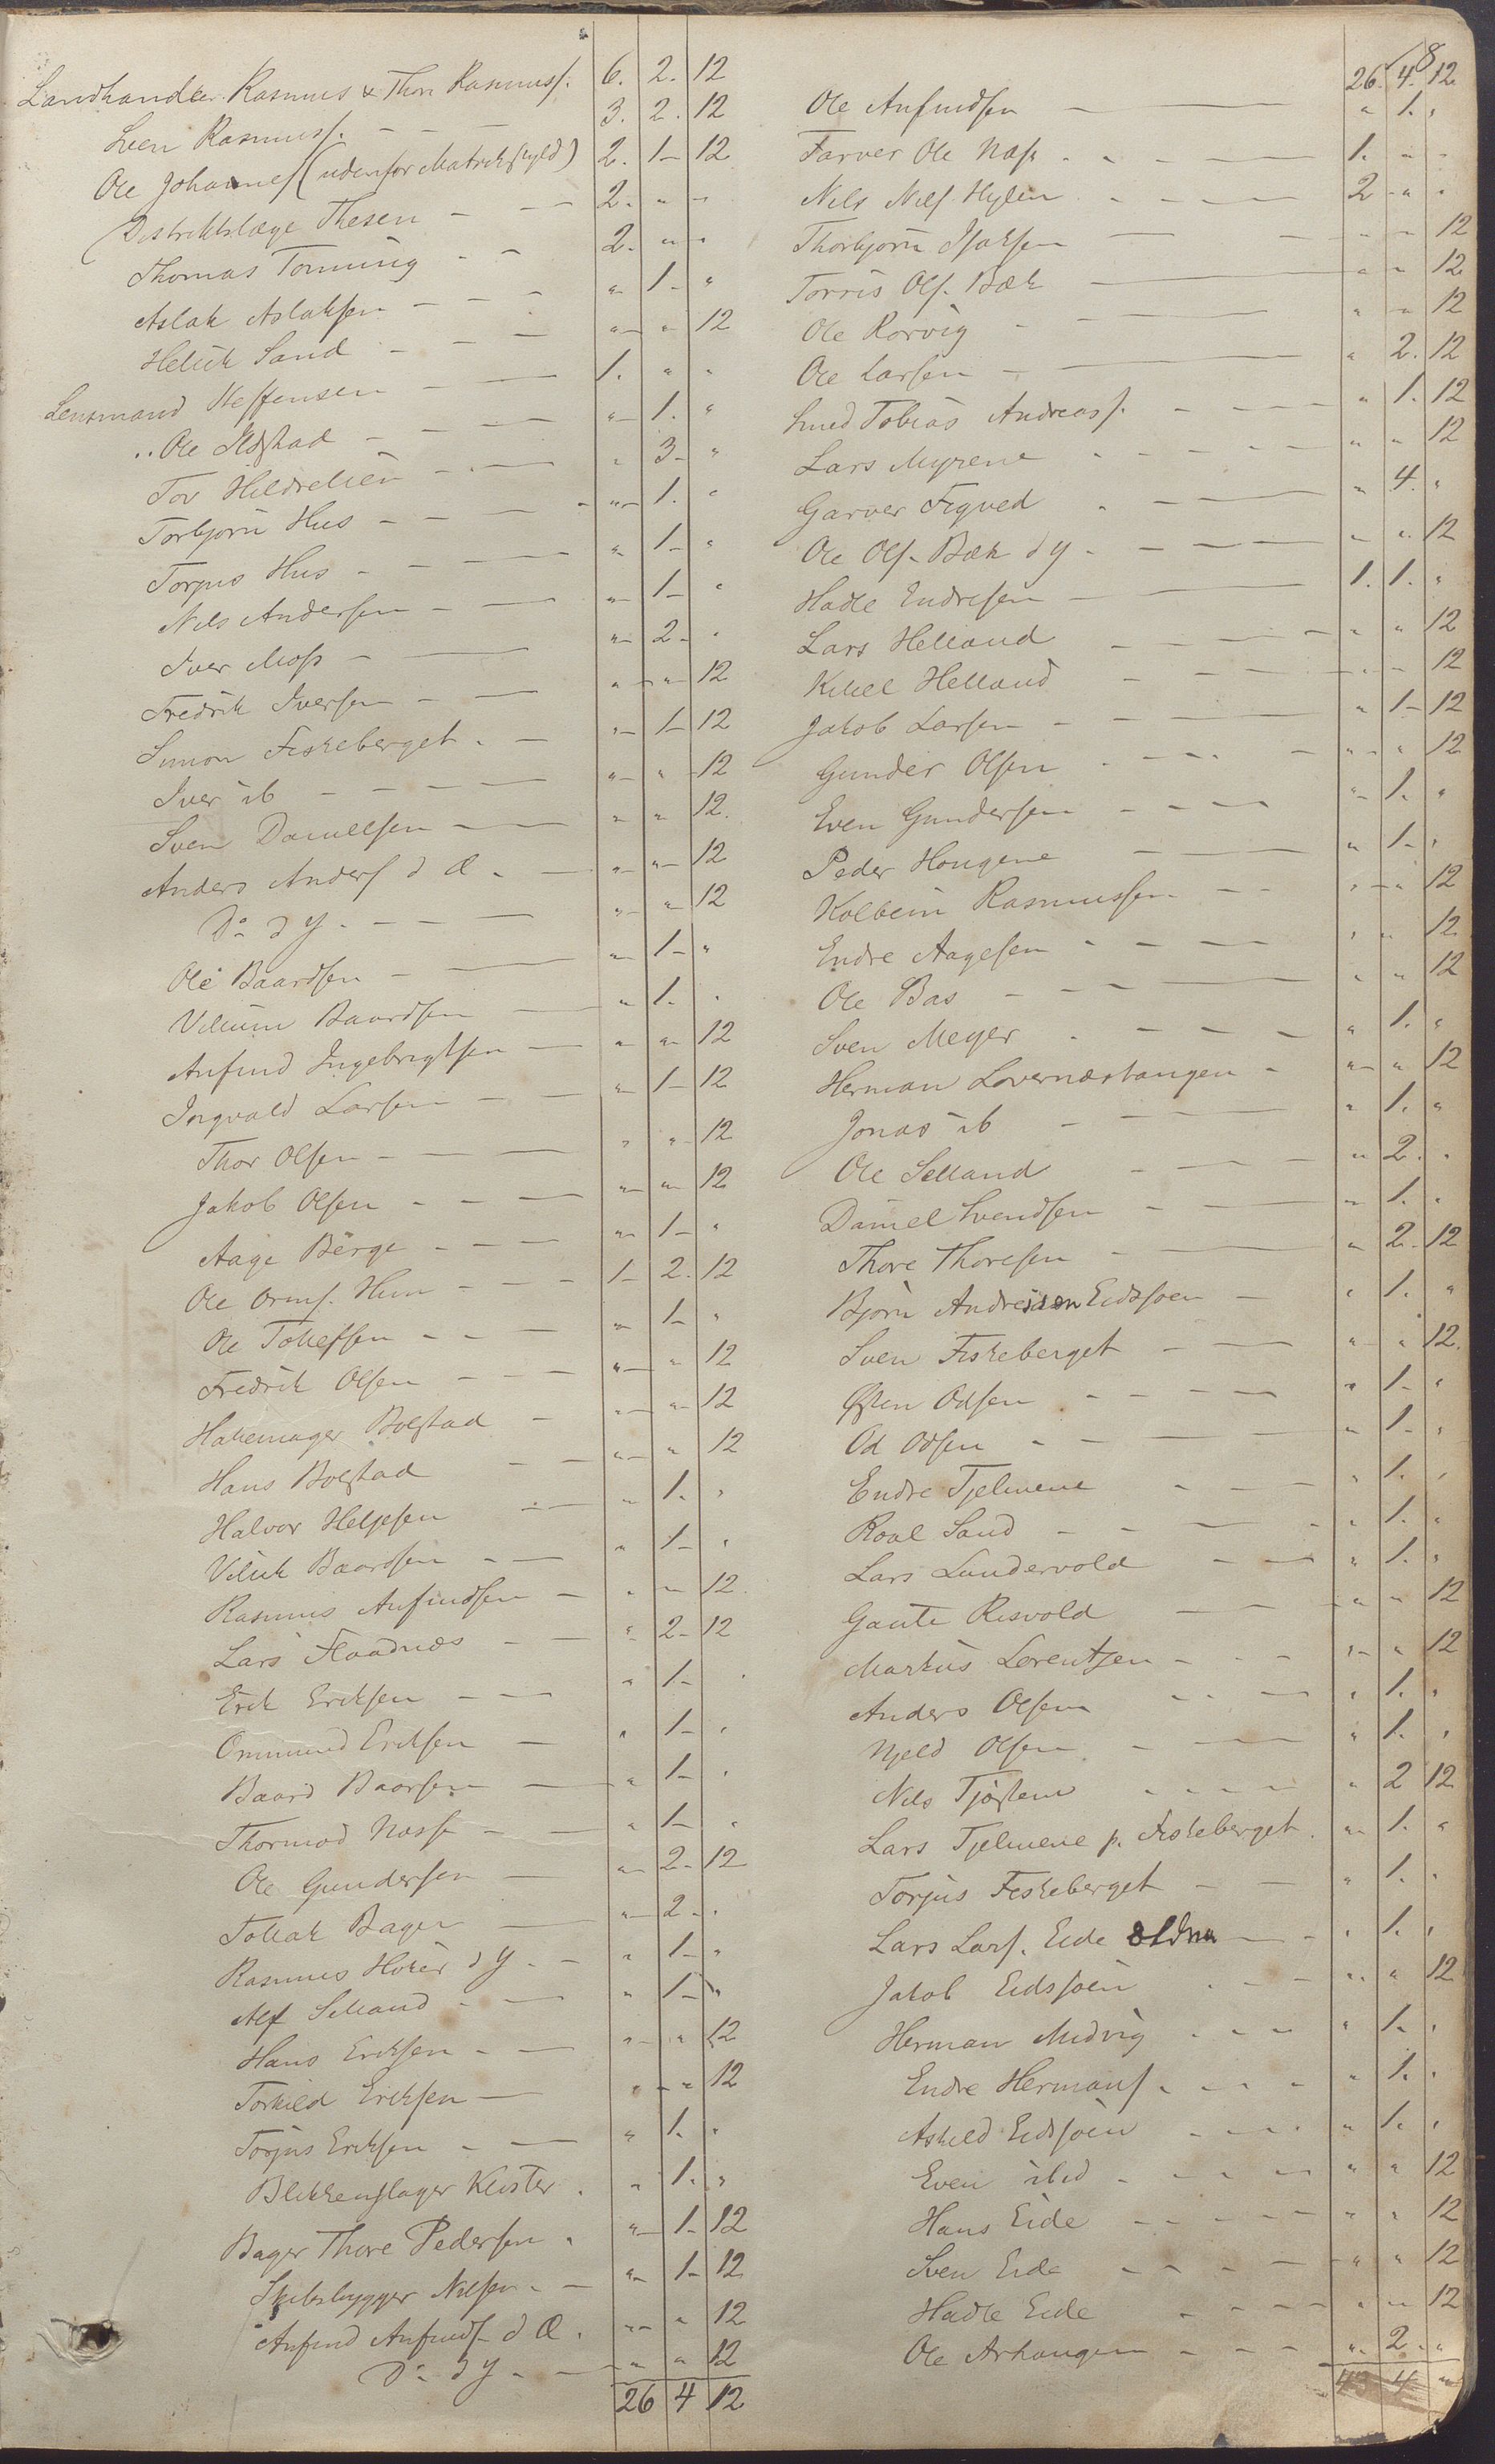 8
Landhandler Rasmus & Thore Rasmuss. 6. 2. 12
Sven Rasmuss. - - - 3. 2. 12
Ole Johannes (udenfor Matrikskyld) 2. 1- 12
Distriktslæge Thesen - - 2. " -
Thomas Tonning - - 2. " "
Aslak Aslaksen - - - " 1- "
Helrik Sand - - - " " 12
Lensmand Steffensen - - 1. " "
Ole Ilstad - - - " 1. "
Tov Hildrelien - - " 3- "
Torbjørn Hus - - - " 1. "
Torjus Hus - - - " 1- "
Nils Andersen - - " 1- "
Iver Moss - - " 2- "
Fredrik Iversen - - " " 12
Simon Fiskeberget - - " 1- 12
Iver ib - - - - " " 12
Sven Danielsen - - " " 12.
Anders Anders d Æ. - " " 12
Do d y. - - - " " 12
Ole Baardsen - - " 1- "
Villum Baardsen - " 1. "
Anfind Ingebrigtsen - " " 12
Ingvald Larsen - - " 1- 12
Thor Olsen - - - " " 12
Jakob Olsen - - - " " 12
Aage Berge - - - " 1- "
Ole Orms. Hun - - - 1- 2. 12
Ole Tollefsen - - - " 1- "
Fredrik Olsen - - - " " 12
Hattemager Bolstad - " " 12
Hans Bolstad - - " " 12
Halvor Helgesen - - " 1. "
Vilik Baardsen - - " 1- "
Rasmus Anfindsen - " " 12.
Lars Flaadnæs - - " 2- 12
Erik Eriksen - - " 1- "
Ommund Eriksen - " 1- "
Baard Baarsen - - " 1- "
Thormod Næss - - " 1- "
Ole Gundersen - " 2- 12
Tollak Bager - " 2- "
Rasmus Høier d y. - " 1- "
Alf Selland - - " 1- "
Hans Eriksen - - " " 12
Torkild Eriksen - " " 12
Torjus Eriksen - - " 1. "
Blikkenslager Kloster. " 1. "
Bager Thore Pedersen. " 1- 12
Skibsbygger Nilsen. - " 1- 12
Anfind Anfinds. d Æ. " " 12
Do d y. - " " 12
26 4 12
26. 4. 12
Ole Anfindsen - - " 1. "
Farver Ole Næss - - - 1. " "
Nils Nils. Hylen - - - 2 " "
Thorbjørn Isaksen - - " " 12
Torris Ols. Bæk - " " 12
Ole Rørvig - - " " 12
Ole Larsen - - " 2. 12
Smed Tobias Andreass. - - - " 1. 12
Lars Myrene - - - - " " 12
Garver Figved - - " 4. "
Ole Ols. Bæk d y - - - " " 12
Hadle Endresen - - 1. 1. "
Lars Helland - - - - " " 12
Kittel Helland - - - " " 12
Jakob Larsen - - - " 1- 12
Gunder Olsen - - - - " " 12
Even Gundersen - - - - " 1. "
Peder Hougene - - " 1- "
Kolbein Rasmussen - - " " 12
Endre Aagesen - - - - " " 12
Ole Bas - - - - " " 12
Sven Meyer - - - - " 1. "
Herman Lovernæstangen - " " 12
Jonas ib - - - " 1. "
Ole Selland - - - - " 2. "
Daniel Svendsen - - - " 1. "
Thore Thoresen - - " 2- 12
Bjørn Andreassen Eidssoen - " 1. "
Sven Fiskeberget - - - " " 12.
Østen Odsen - - - - " 1- "
Od Odsen - - - - " 1- "
Endre Tjelmene - - - " 1. "
Roal Sand - - - - " 1. "
Lars Lundervold - - " 1. "
Gaute Risvold - - - " " 12
Markus Lorentzen - - - " " 12
Anders Olsen - - - " 1. "
Njeld Olsen - - " 1. "
Nils Tjøstem - - - - " 2 12
Lars Tjelmene p. Fiskeberget. " 1. "
Torjus Fiskeberget - - " 1. "
Lars Lars. Eide - - " 1. "
Jakob Eidssoen - - - - " " 12
Herman Midvig - - - " 1- "
Endre Hermans. - - - " 1. "
Askild Eidssoen - - - " 1. "
Even ibid - - - - - " " 12
Hans Eide - - - - - " " 12
Sven Eide - - - - " " 12
Hadle Eide - - - - " " 12
Ole Arhaugen - - - - " 2- "
43 4 "